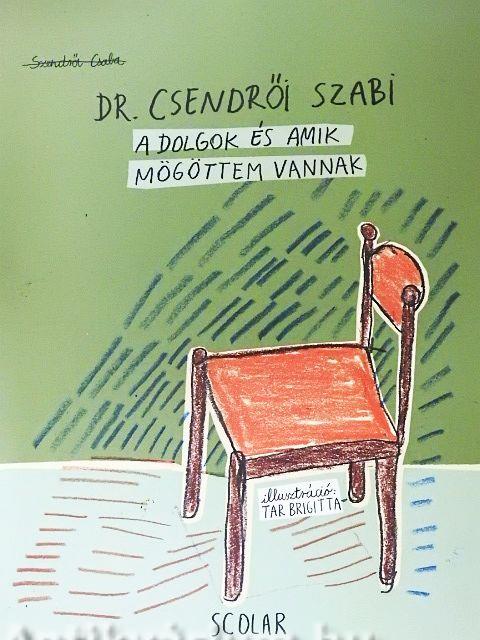 Szendrői Csaba
DR. CSENDRŐI SZABI
A DOLGOK ÉS AMIK
MÖGÖTTEM VANNAK
illusztráció:
TAR BRIGITTA
SCOLAR